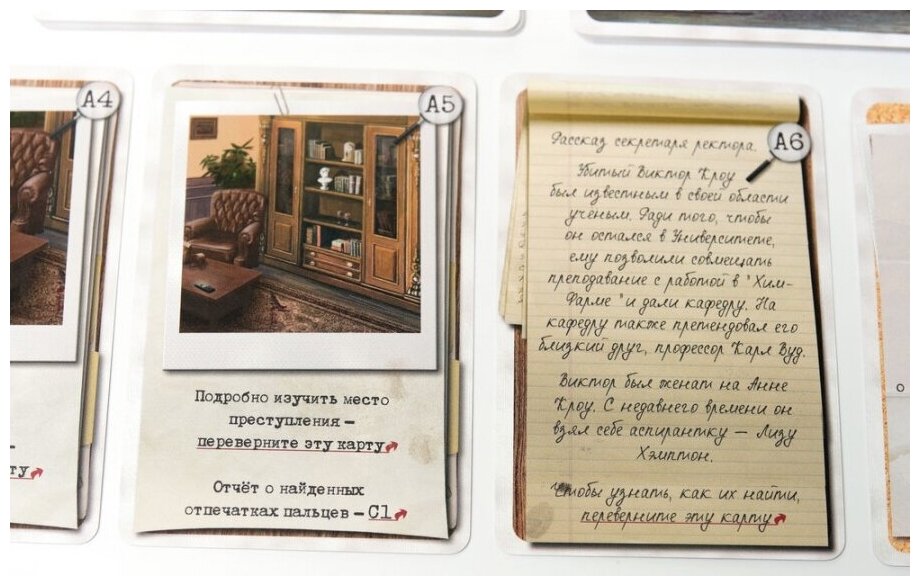 A4
ту
A5
Подробно изучить место
преступления —
переверните эту карту
Отчёт о найденных
отпечатках пальцев – C1
A6
Рассказ секретаря ректора.
Убитый Виктор Кроу
был известным в своей области
ученым. Ради того, чтобы
он остался в Университете,
ему позволили совмещать
преподавание с работой в "Хим-
Фарме" и дали кафедру. На
кафедру также претендовал его
близкий друг, профессор Карл Вуд.
Виктор был женат на Анне
Кроу. С недавнего времени он
взял себе аспирантку — Лизу
Хэмптон.
Чтобы узнать, как их найти,
переверните эту карту